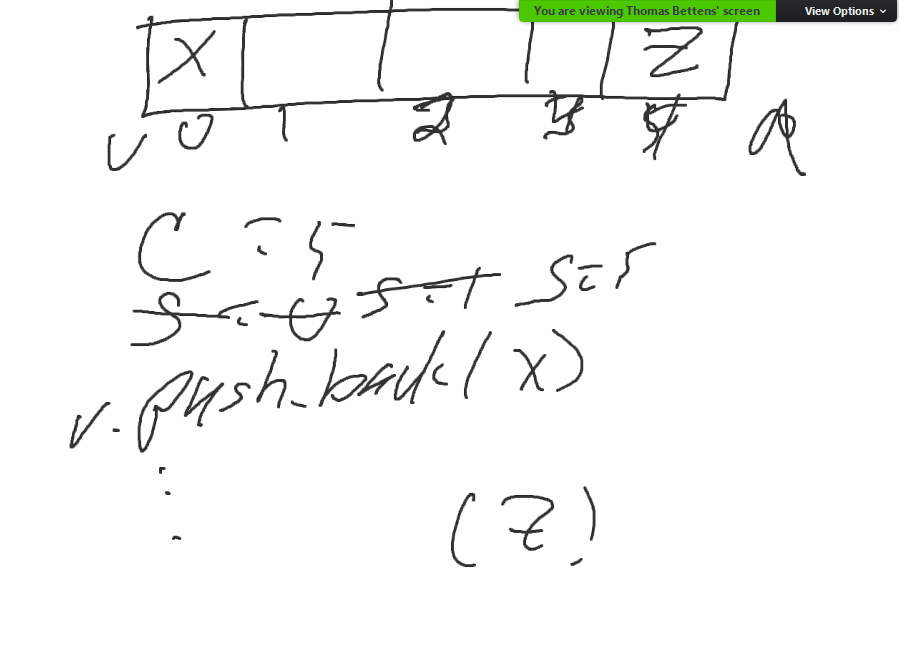 You are viewing Thomas Bettens' screen View Options
X Z
v 0 1 2 3 4
C = 5
S = 0 S = 1 S = 5
v.push_back(X)
(Z)